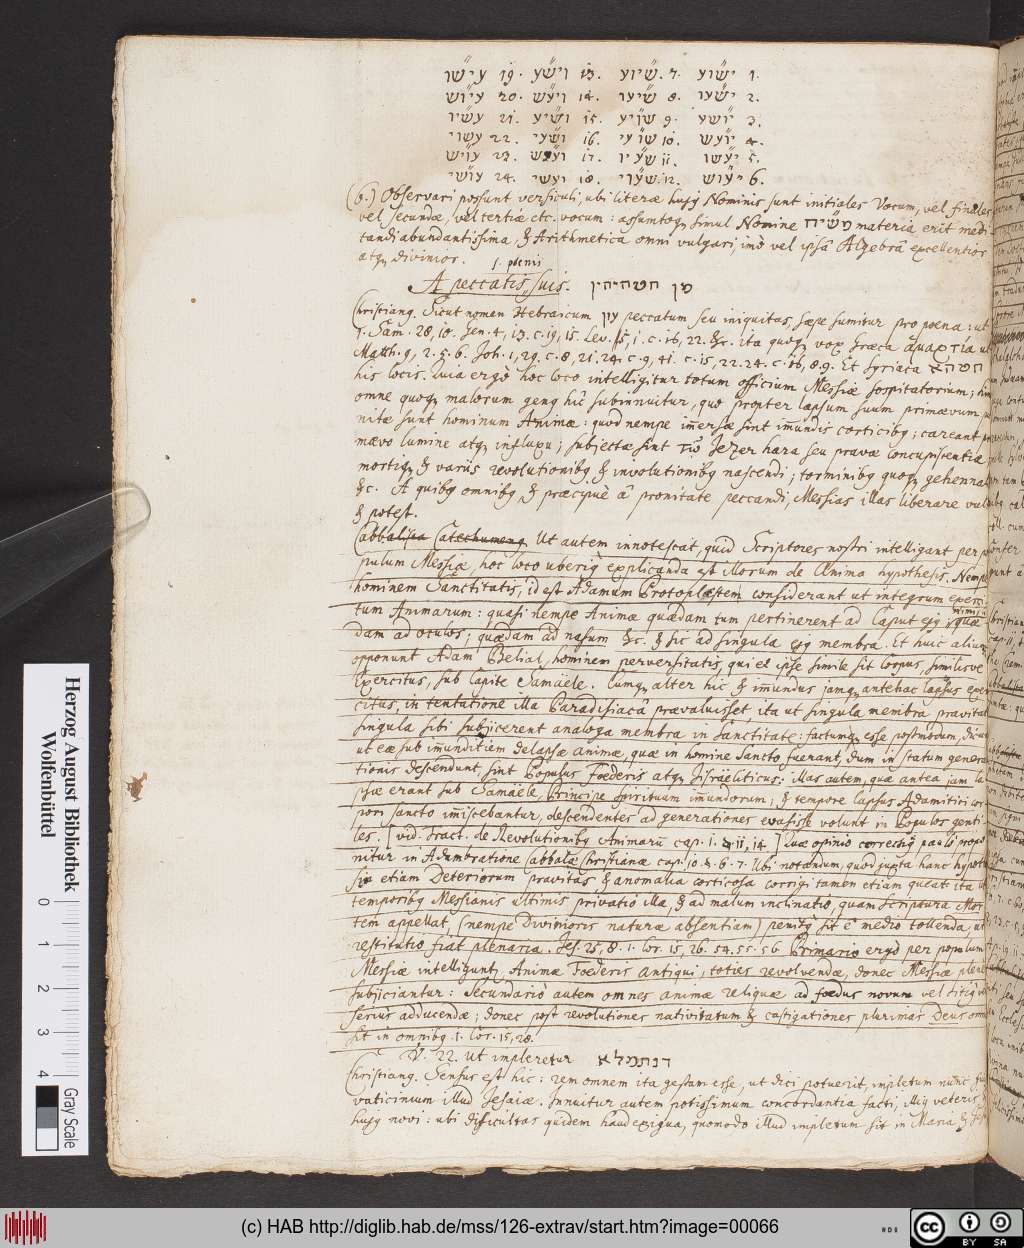 1. ישוע 7. שיוע 13. וישע 19. עישו
2. ישעו 8. שיעו 14. ויעש 20. עיוש
3. יושע 9. שויע 15. ושיע 21. עשיו
4. יועש 10. שועי 16. ושעי 22. עשוי
5. יעשו 11. שעיו 17. ועיש 23. עויש
6. יעוש 12. שעוי 18. ועשי 24. עושי
(6.) Observari possunt versiculi, ubi literæ hujq Nominis sunt initiales Vocum, vel finales
vel secundæ, vel tertiæ etc. vocum: assumtoq simul Nomine משיח materia erit medi
tandi abundantissima, & Arithmetica omni vulgari, imò vel ipsâ Algebrâ excellentior
atq divinior.
s. pœnis
A peccatis suis. מן חטהיהין
Christiang. Sicut nomen Hebraicum עון peccatum seu iniquitas, sæpe sumitur pro pœna: ut
1. Sam. 28, 10. Gen. 4, 13. c. 19, 15. Lev. 5, 1. c. 16, 22. &c. ita quoq vox Græca ἁμαρτία ut
Matth. 9, 2. 5. 6. Joh. 1, 29. c. 8, 21. 24. c. 9, 41. c. 15, 22. 24. c. 16, 8. 9. Et Syriaca חטהא
his locis. Quia ergò hoc loco intelligitur totum officium Messiæ sospitatorium;
omne quoq malorum geng hîc subinnuitur, quo propter lapsum suum primævum
nitæ sunt hominum Animæ: quod nempe immersæ sint immundis corticibq; careant
mævo lumine atq influxu; subjectæ sint Jezer hara seu pravæ concupiscentiæ
mortiq & variis revolutionibq & involutionibq nascendi; torminibq quoq gehennal
&c. A quibq omnibq & præcipuè â pronitate peccandi, Messias illas liberare vult
& potest.
Cabbalista Catechumeng. Ut autem innotescat, quid Scriptores nostri intelligant per po
pulum Messiæ, hoc loco uberiq explicanda est illorum de Anima hypothesis. Nempe
hominem Sanctitatis, id est Adamum Protoplastem considerant ut integrum exerci
tum Animarum: quasi nempe Animæ quædam tum pertinerent ad Caput ejq quæ
dam ad oculos; quædam ad nasum &c. & sic ad singula ejq membra. Et huic alium
opponunt Adam Belial, hominem perversitatis, qui et ipse simile sit Corpus, similisve
Exercitus, sub Capite Samaële. Cumq alter hic & immundus jamq antehac lapsus exer
citus, in tentatione illa Paradisiacâ prævaluisset, ita ut singula membra pravitat
singula sibi subjicerent analoga membra in Sanctitate: factumq esse postmodum, dicunt
ut eæ sub immunditiem delapsæ animæ, quæ in homine Sancto fuerant, dum in statum genera
tionis descendunt, sint Populus Fœderis atq Israëliticus: illas autem, quæ antea jam la
psæ erant sub Samaële, Principe spirituum immundorum; & tempore lapsus Adamitici cor
pori sancto immiscebantur, descendentes ad generationes evasisse volunt in Populos genti
les. [vid. Tract. de Revolutionibq Animarũ cap. 1. 11, 14] Quæ opinio correctiq paulò propo
nitur in Adumbratione Cabbalæ Christianæ cap. 10. 6. 7. Ubi notandum, quod juxta hanc hypothe
sin etiam Deteriorum pravitas & anomalia corticosa corrigi tamen etiam queat ita ut
temporibq Messianis ultimis privatio illa, & ad malum inclinatio, quam Scriptura Mor
tem appellat, (nempe Divinioris naturæ absentiam) penitq sit è medio tollenda, ut
restitutio fiat plenaria. Jes. 25, 8. 1. Cor. 15, 26. 54. 55. 56. Primario ergò per populum
Messiæ intelligunt, Animæ Fœderis antiqui, toties revolvendæ, donec Messiæ plenè
subjiciantur: Secundariò autem omnes animæ reliquæ ad fœdus novum vel citiq vel
seriùs adducendæ; donec post revolutiones nativitatum & castigationes plurimas Deus omnia
sit in omnibq. 1. Cor. 15, 28.
V. 22. Ut impleretur דנתמלא
Christiang. Sensus est hic: rem omnem ita gestam esse, ut dici potuerit, impletum nunc
vaticinium illud Jesaiæ. Innuitur autem potissimum concordantia facti, illiq veteris
hujq novi: ubi difficultas quidem haud exigua, quomodo illud impletum sit in Maria &
Herzog August Bibliothek
Wolfenbüttel
0 1 2 3 4
Gray Scale
(c) HAB http://diglib.hab.de/mss/126-extrav/start.htm?image=00066
cc BY SA